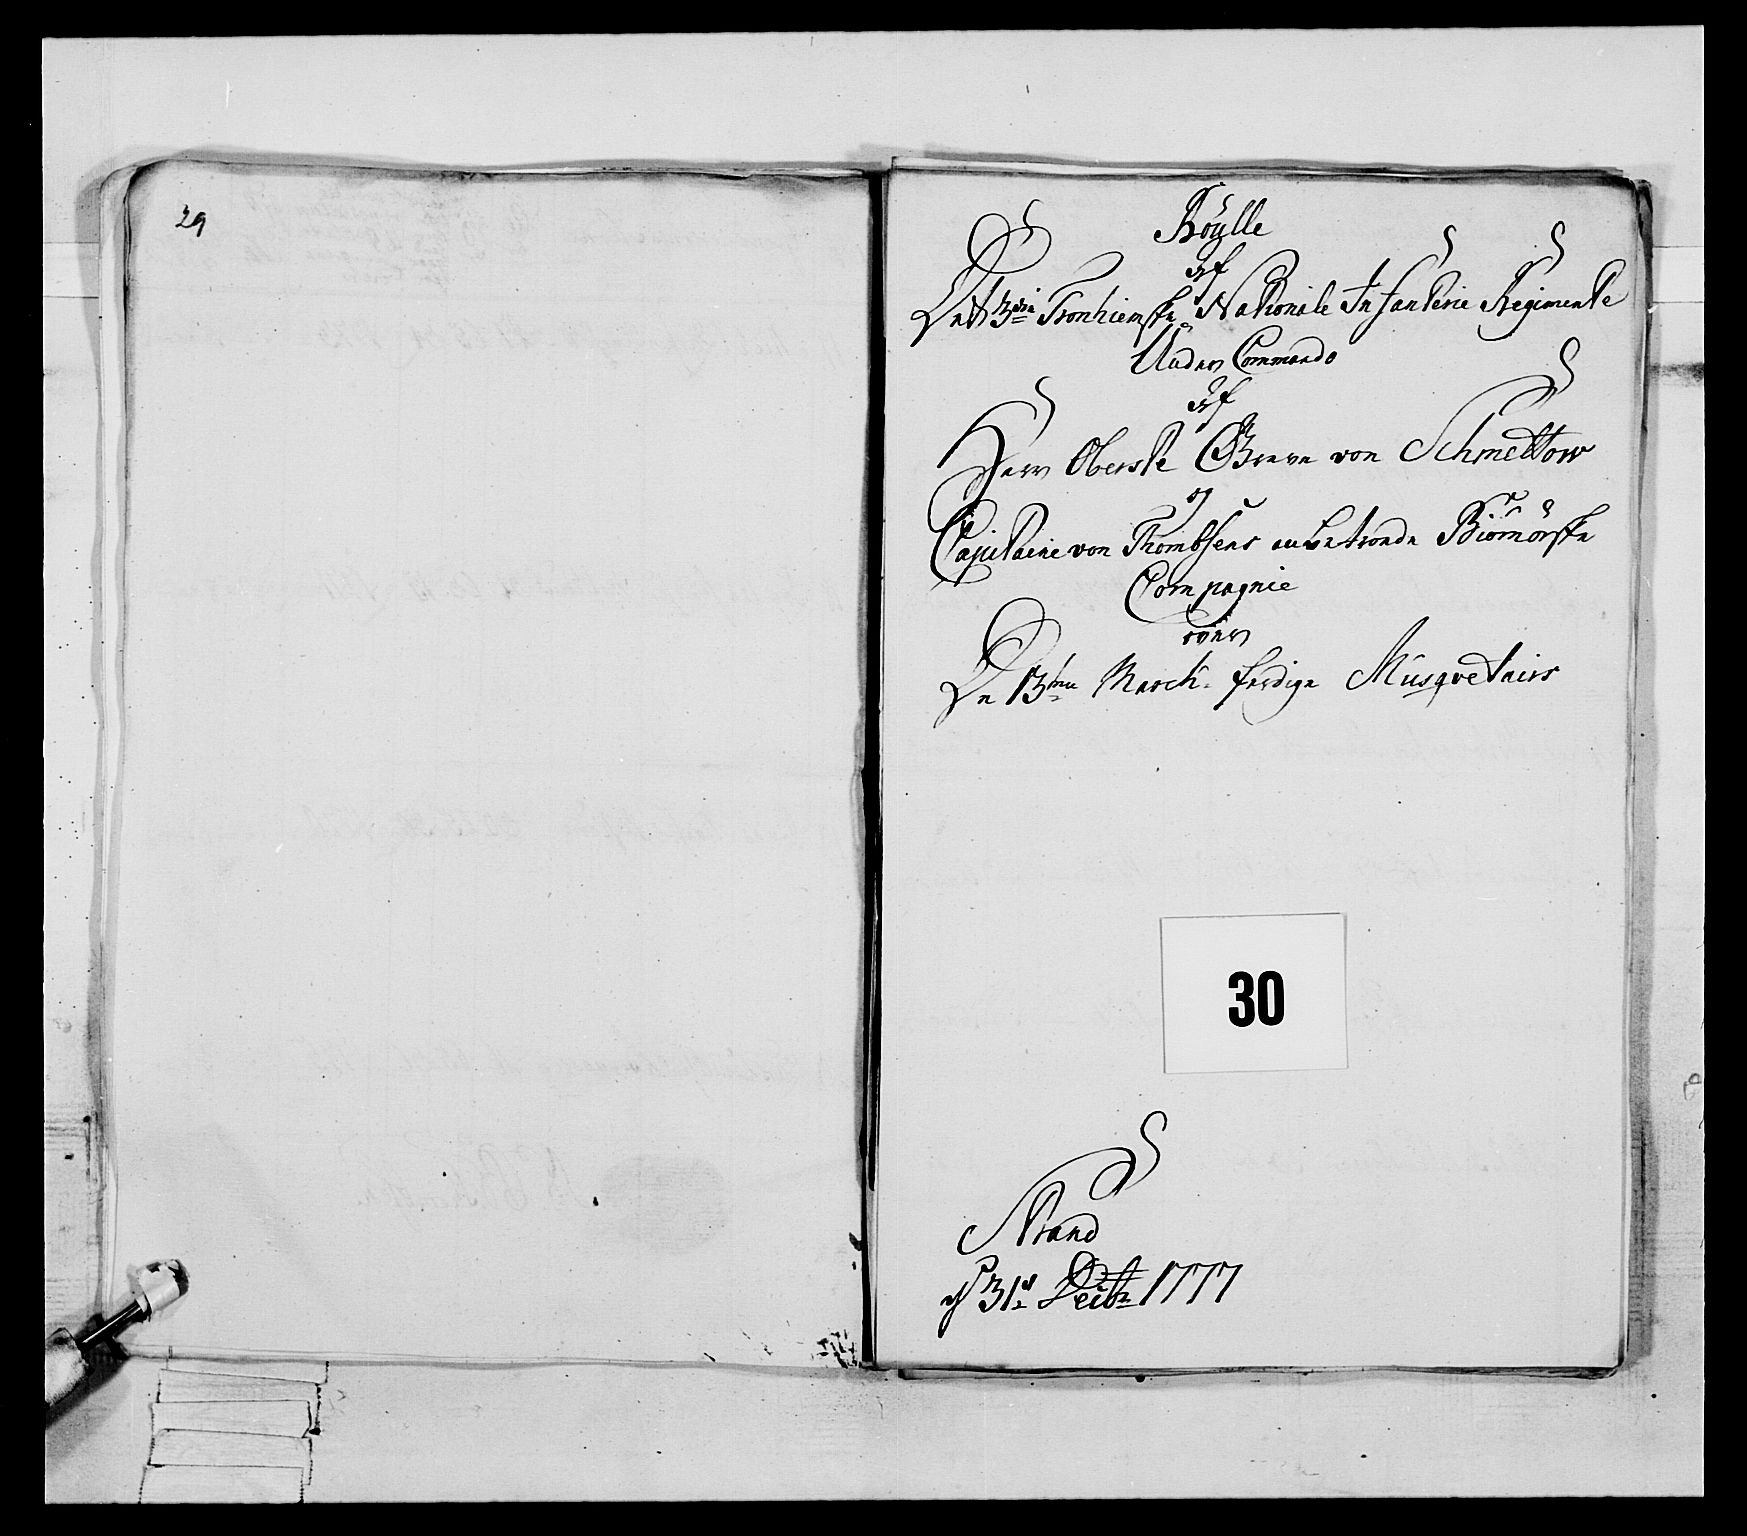 29
Röulle
af
Det 3die Tronhiemske Nationale Infanterie Regimente
Under Commando
af
Herr Oberste Greve von Schmettow
og
Capitaine von Thombsens anbetroede Biömörske
Compagnie
over
De 13ten March-ferdige Musqvetairs
30
Strand
d 31te Decbr 1777